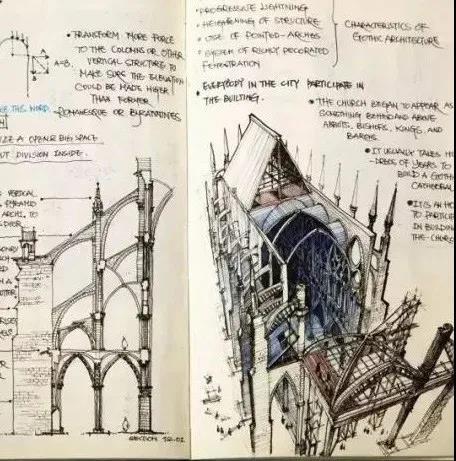 • TRANSFORM MORE FORCE
TO THE COLOMNS OR OTHER
VERTICAL STRUCTURE TO
MAKE SURE THE ELEVATION
COULD BE MADE HIGER
THAN FORMER
ROMANESQUE OR BYZANTINES.
THIS WORD.
A=B.
A OPENER BIG SPACE
OUT DIVISION INSIDE.
VERTICAL
ARCH, TO
SECTION
• PROGRESSIVE LIGHTNING
• HEIGHTENING OF STRUCTURE
• USE OF POINTED-ARCHES
• SYSTEM OF RICHLY DECORATED
FENESTRATION
CHARACTERISTICS OF
GOTHIC ARCHITECTURE
• EVERYBODY IN THE CITY PARTICIPATE IN
THE BUILTING.
• THE CHURCH BEGAN TO APPEAR AS
SOMETHING BEHIND AND ABOVE
ABBOTS, BISHOPS, KINGS, AND
• IT USUALLY TAKES HU
-DREDS OF YEARS TO
BUILD A GOTHI
CATHEDRAL
• IT IS AN HO
TO PARTICI
IN BUILDIN
THE CHUR